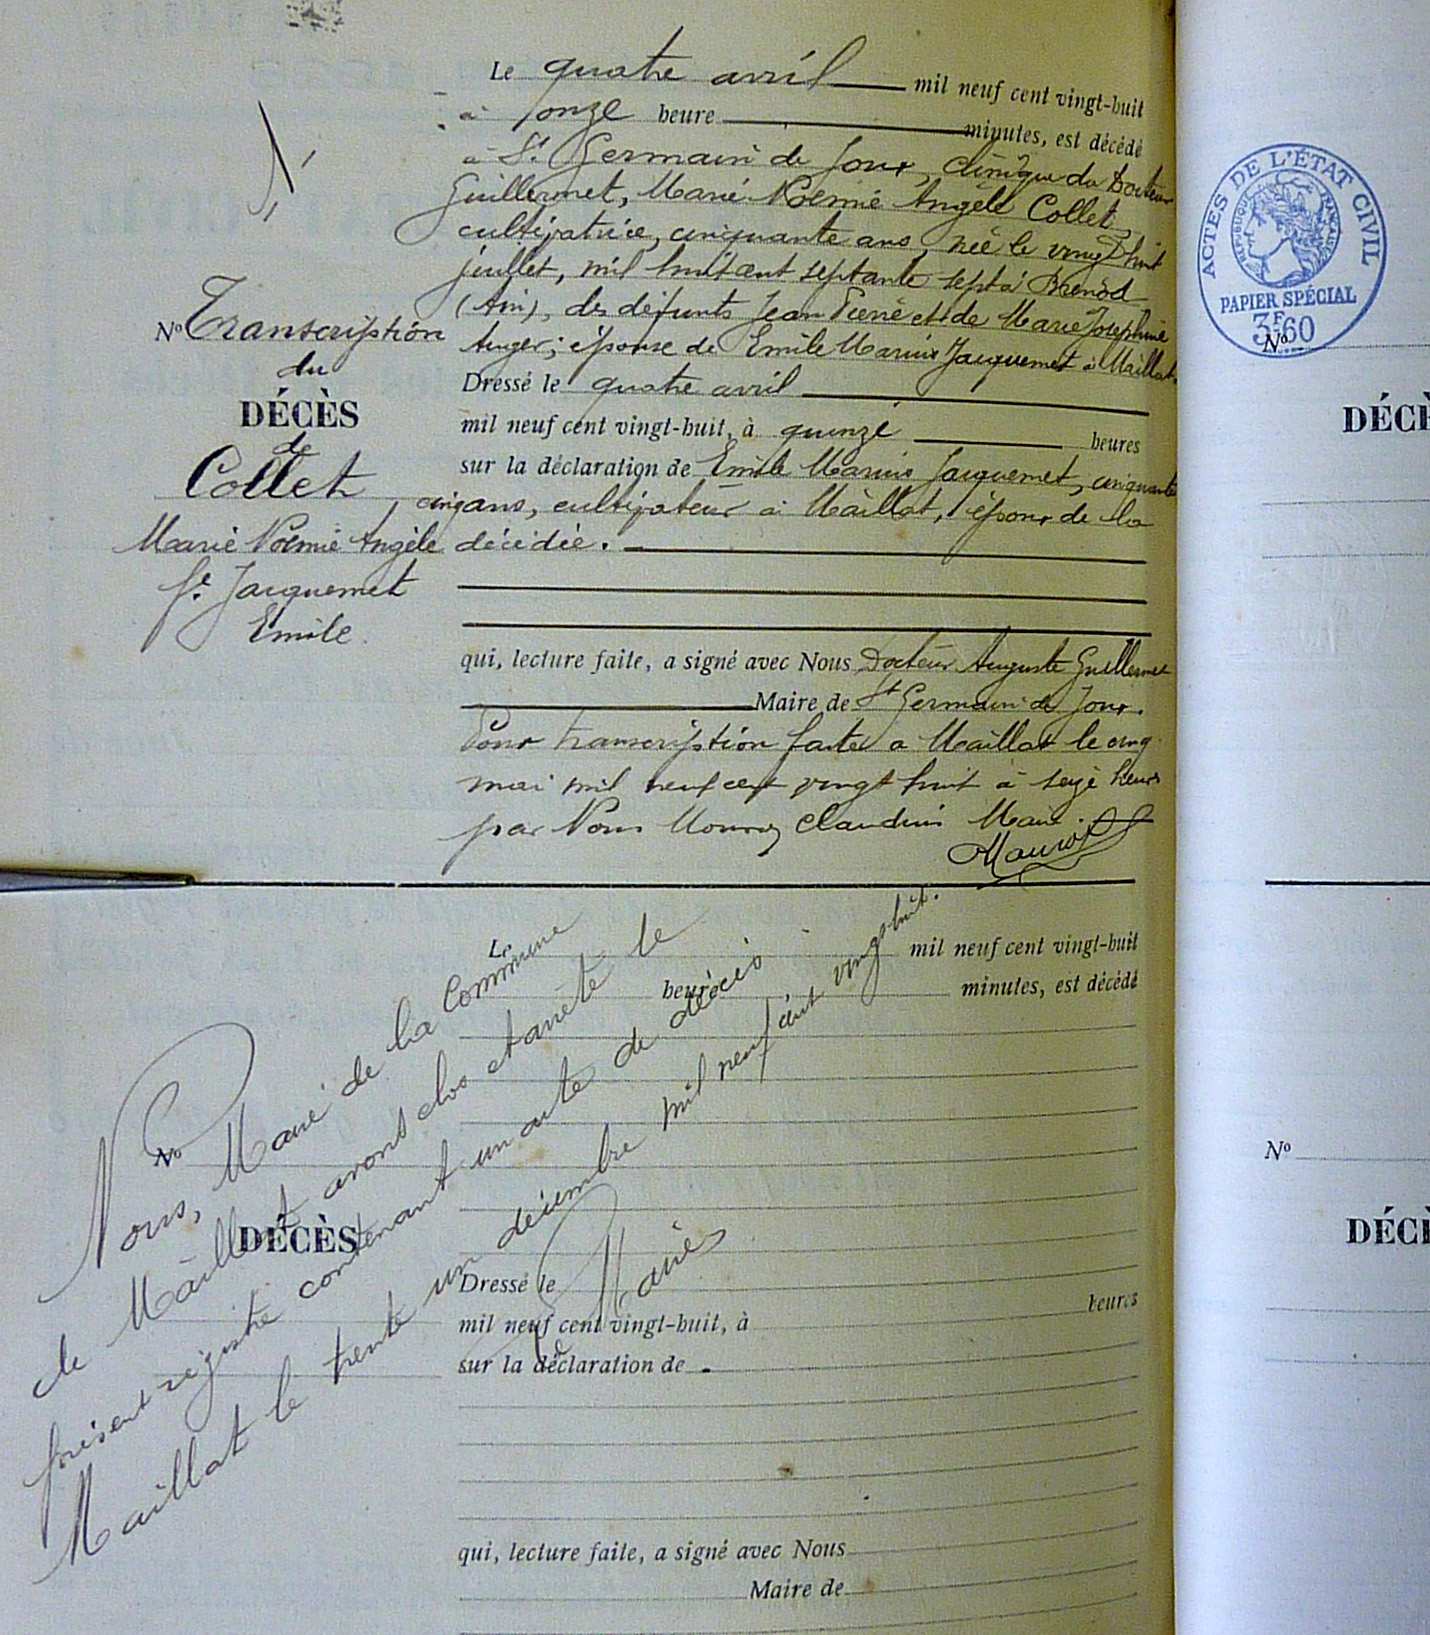 Le quatre avril mil neuf cent vingt-huit
à onze heure minutes, est décédé
à St Germain de Joux, clinique du Docteur
Guillermet, Marie Noémie Angèle Collet
cultivatrice, cinquante ans, née le vingt huit
juillet, mil huit cent septante sept à Brenod
(Ain), des défunts Jean Pierre et de Marie Josephine
Auger; épouse de Emile Marius Jacquemet à Maillat
Dressé le quatre avril
mil neuf cent vingt-huit, à quinze heures
sur la déclaration de Emile Marius Jacquemet, cinquante
cinq ans, cultivateur à Maillat, époux de la
décédée.
qui, lecture faite, a signé avec Nous Docteur Auguste Guillermet
Maire de St Germain de Joux.
Pour transcription faite a Maillat le cinq
mai mil neuf cent vingt huit à seize heures
par Nous Claudius Maire.
No Transcription
du
DÉCÈS
de
Collet
Marie Noémie Angèle
fe Jacquemet
Emile
Le mil neuf cent vingt-huit
heure minutes, est décédé
No
DÉCÈS
Dressé le
mil neuf cent vingt-huit, à heures
sur la déclaration de
qui, lecture faite, a signé avec Nous
Maire de
Nous, Maire de la Commune
de Maillat avons clos et arrêté le
présent registre contenant un acte de décès
Maillat le trente un décembre mil neuf cent vingt-huit.
Maire
ACTES DE L'ÉTAT CIVIL
RÉPUBLIQUE FRANÇAISE
PAPIER SPÉCIAL
3F60
No
DÉCÈ
No
DÉCÈ